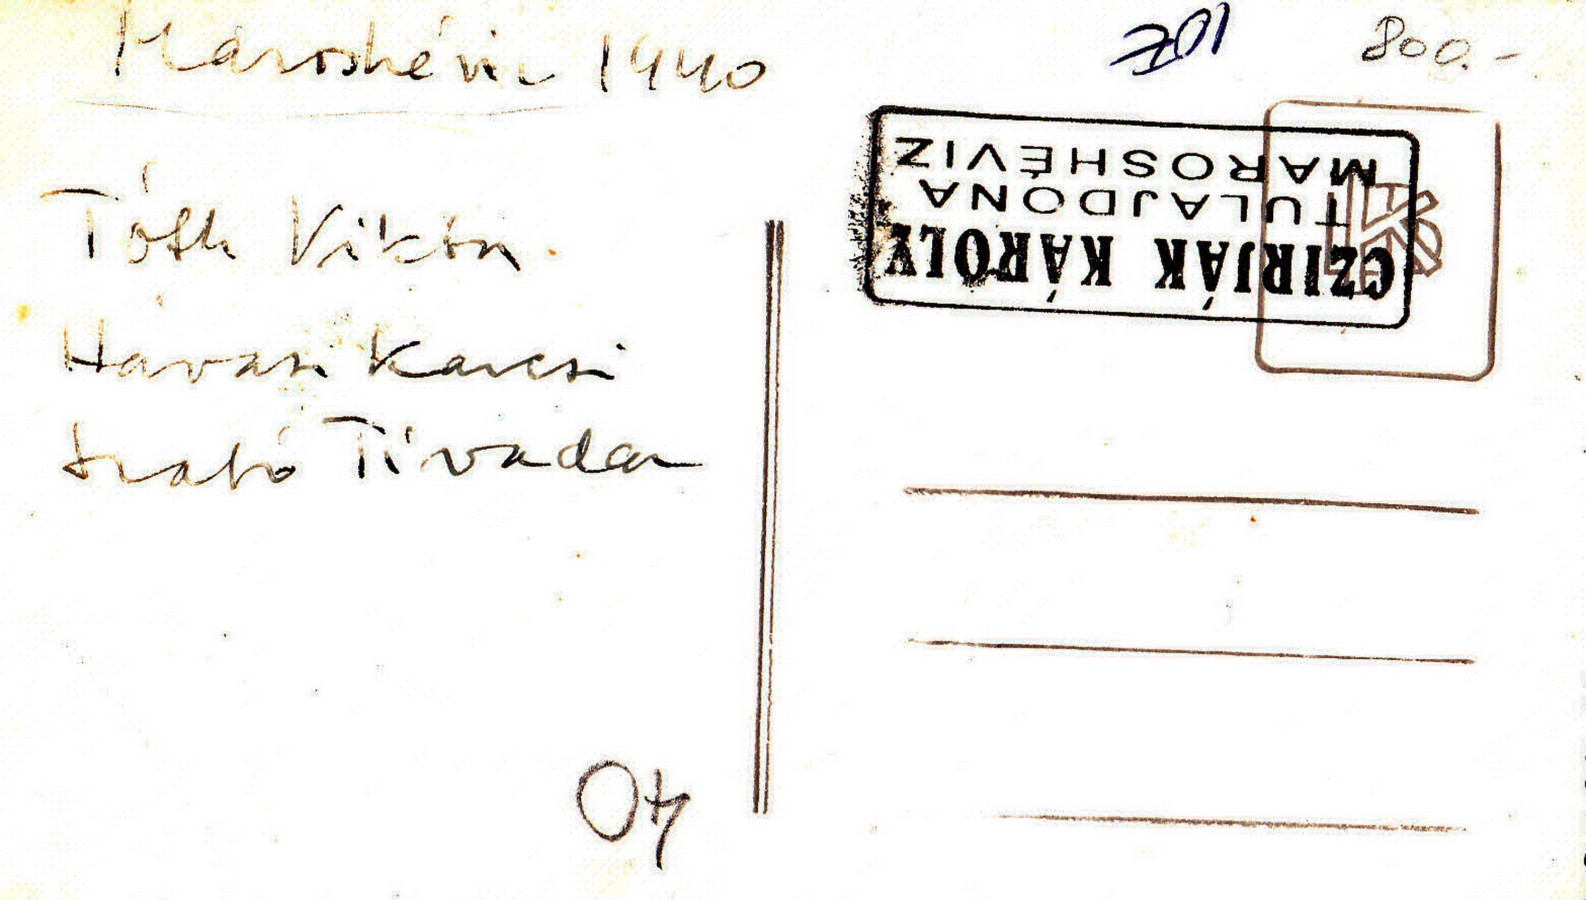 Maroshévíz 1940
800.-
Tóth Viktor.
Havasi Karcsi
Szabó Tivadar
CZIRJÁK KÁROLY
TULAJDONA
MAROSHÉVIZ